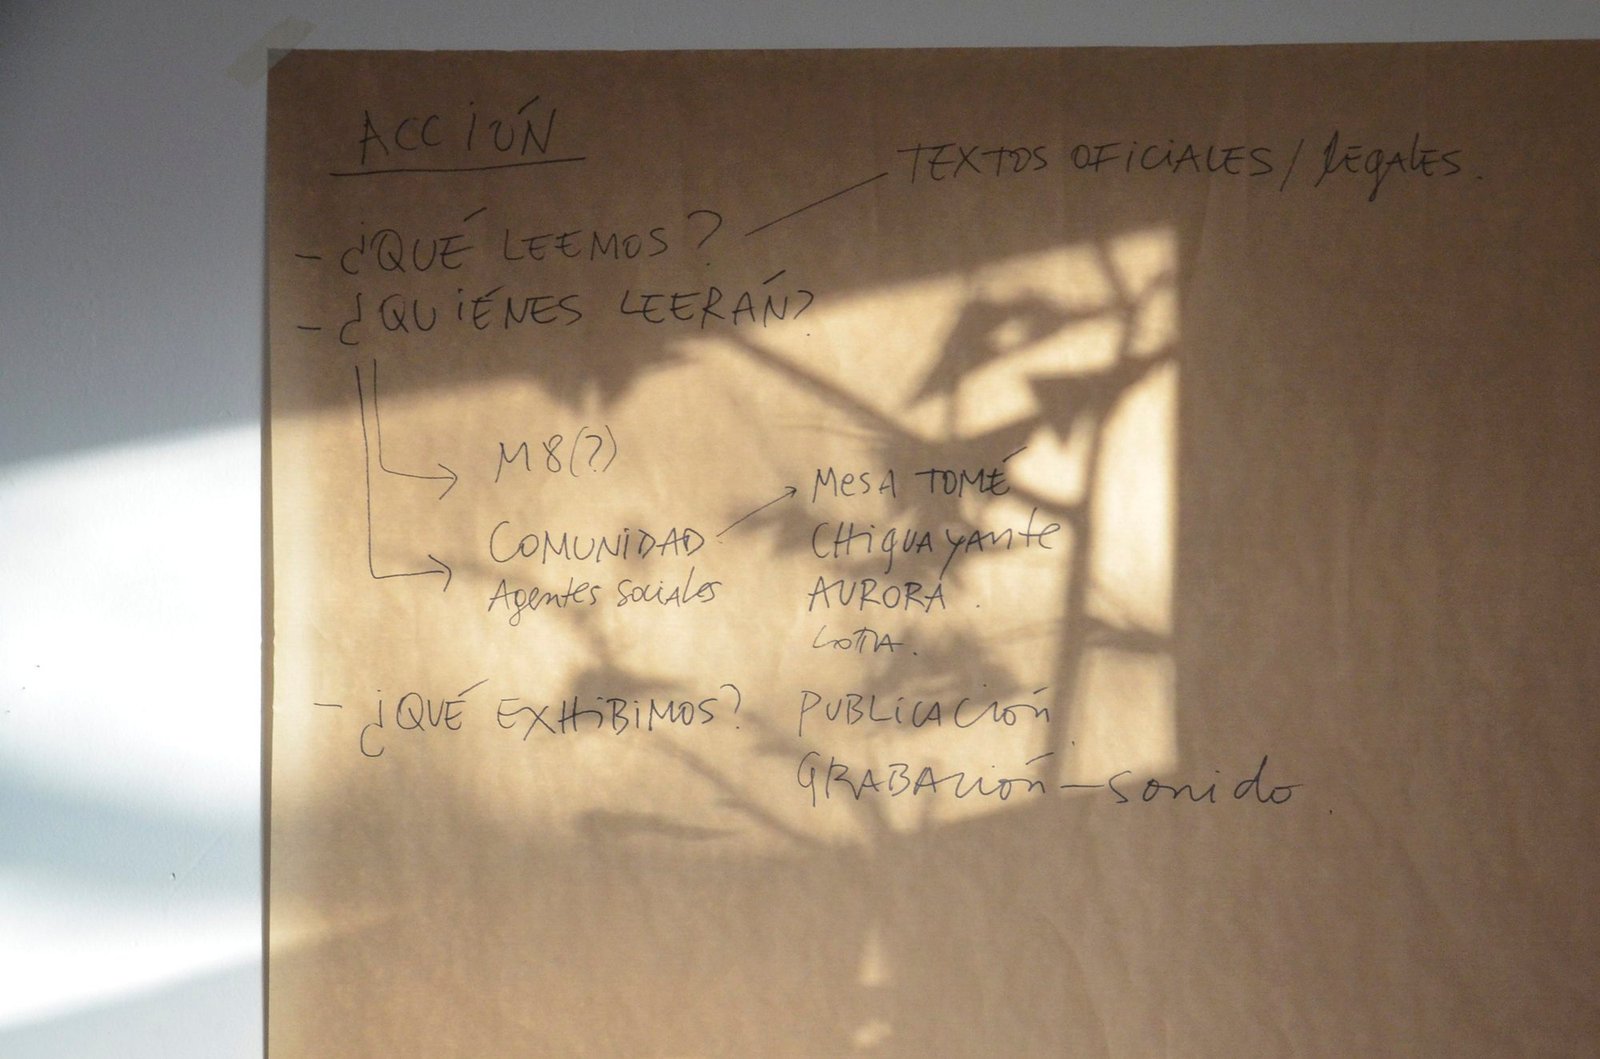 ACCIÓN
TEXTOS OFICIALES / legales.
- ¿QUÉ LEEMOS?
- ¿QUIÉNES LEERÁN?
M8(?)
COMUNIDAD
Agentes sociales
MESA TOMÉ
CHIGUAYANTE
AURORA.
LOTA.
- ¿QUÉ EXHIBIMOS? PUBLICACIÓN
GRABACIÓN - sonido.